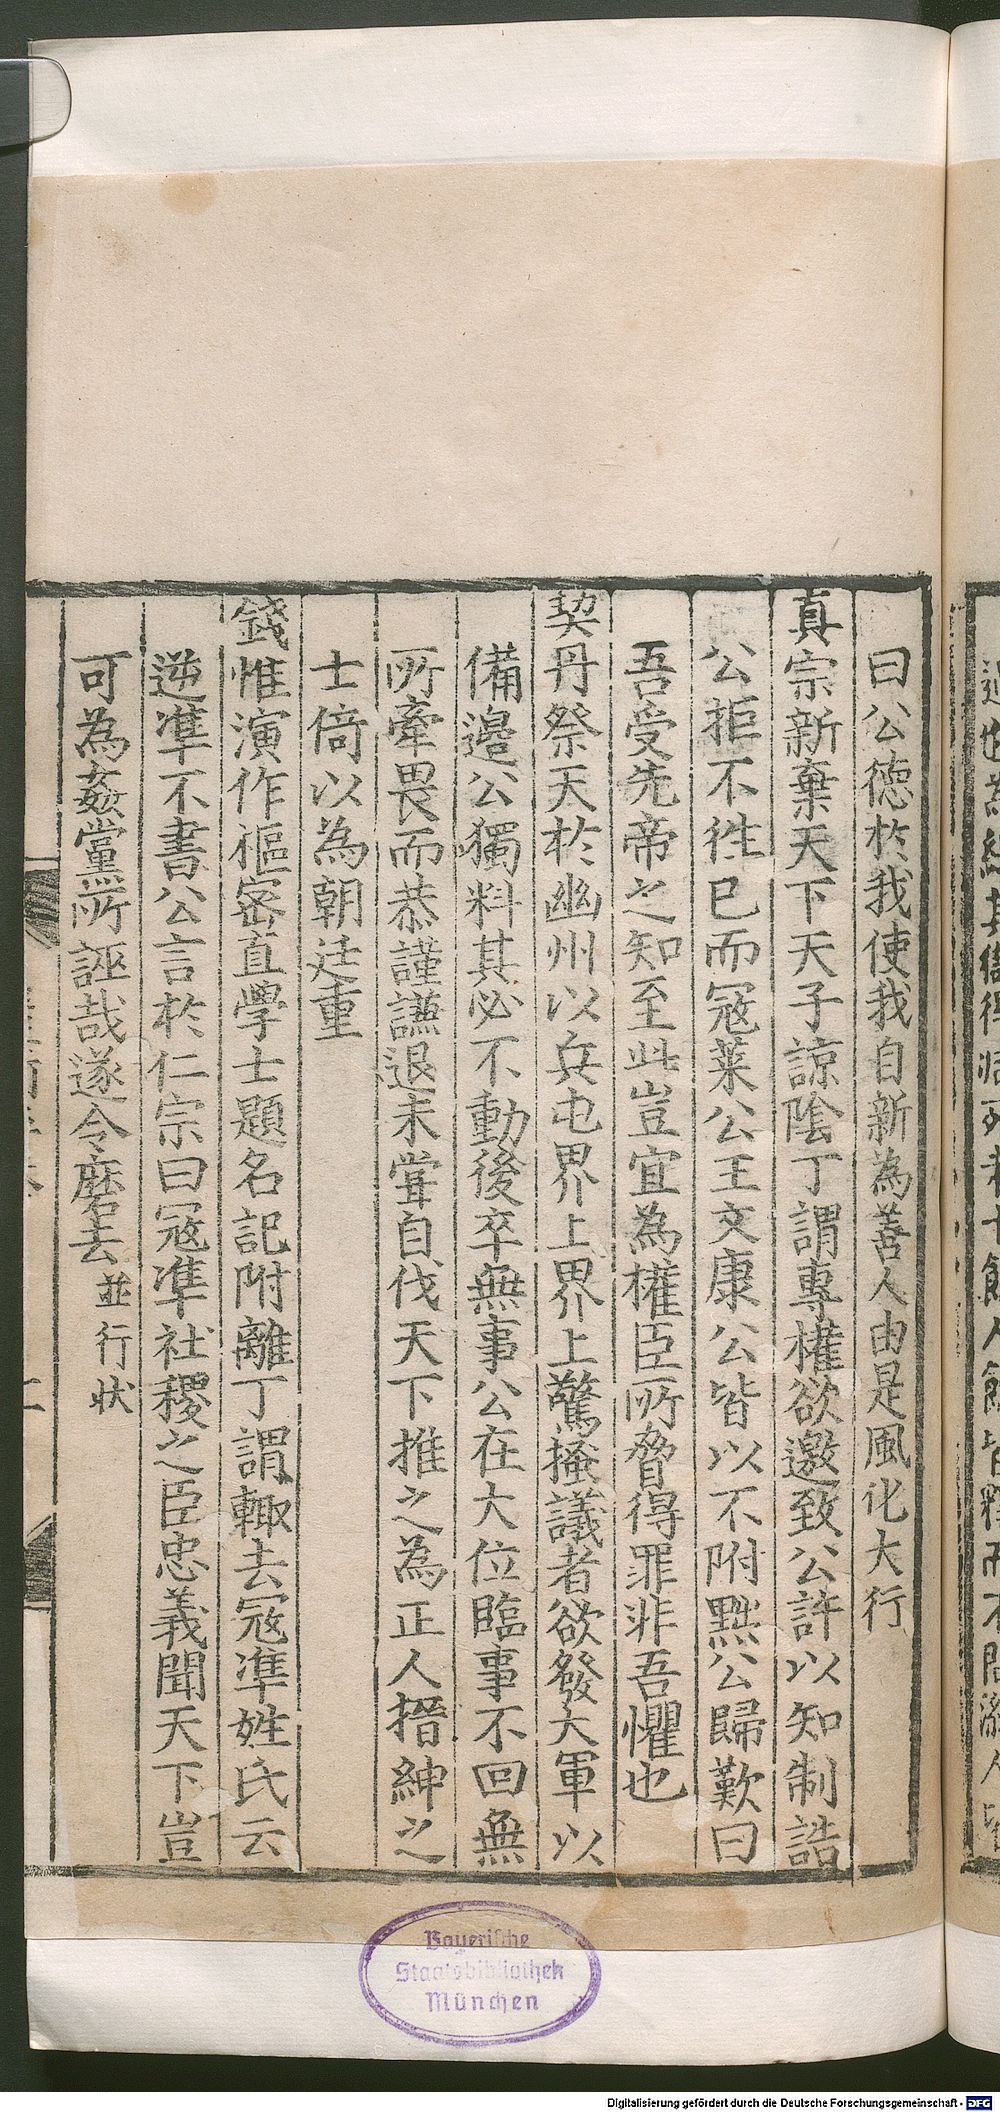 曰公徳於我使我自新為善人由是風化大行
真宗新棄天下天子諒隂丁謂專權欲邀致公許以知制誥
公拒不徃已而冦萊公王文康公皆以不附黙公歸歎曰
吾受先帝之知至此豈宜為權臣所脅得罪非吾懼也
契丹祭天於幽州以兵屯界上界上驚搔議者欲發大軍以
備邉公獨料其必不動後卒無事公在大位臨事不回無
所牽畏而恭謹謙退未甞自伐天下推之為正人搢紳之
士倚以為朝廷重
錢惟演作樞宻直學士題名記附離丁謂輙去冦凖姓氏云
逆凖不書公言於仁宗曰冦凖社稷之臣忠義聞天下豈
可為姦黨所誣哉遂令磨去並行狀
Bayerische
Staatsbibliothek
München
Digitalisierung gefördert durch die Deutsche Forschungsgemeinschaft - DFG